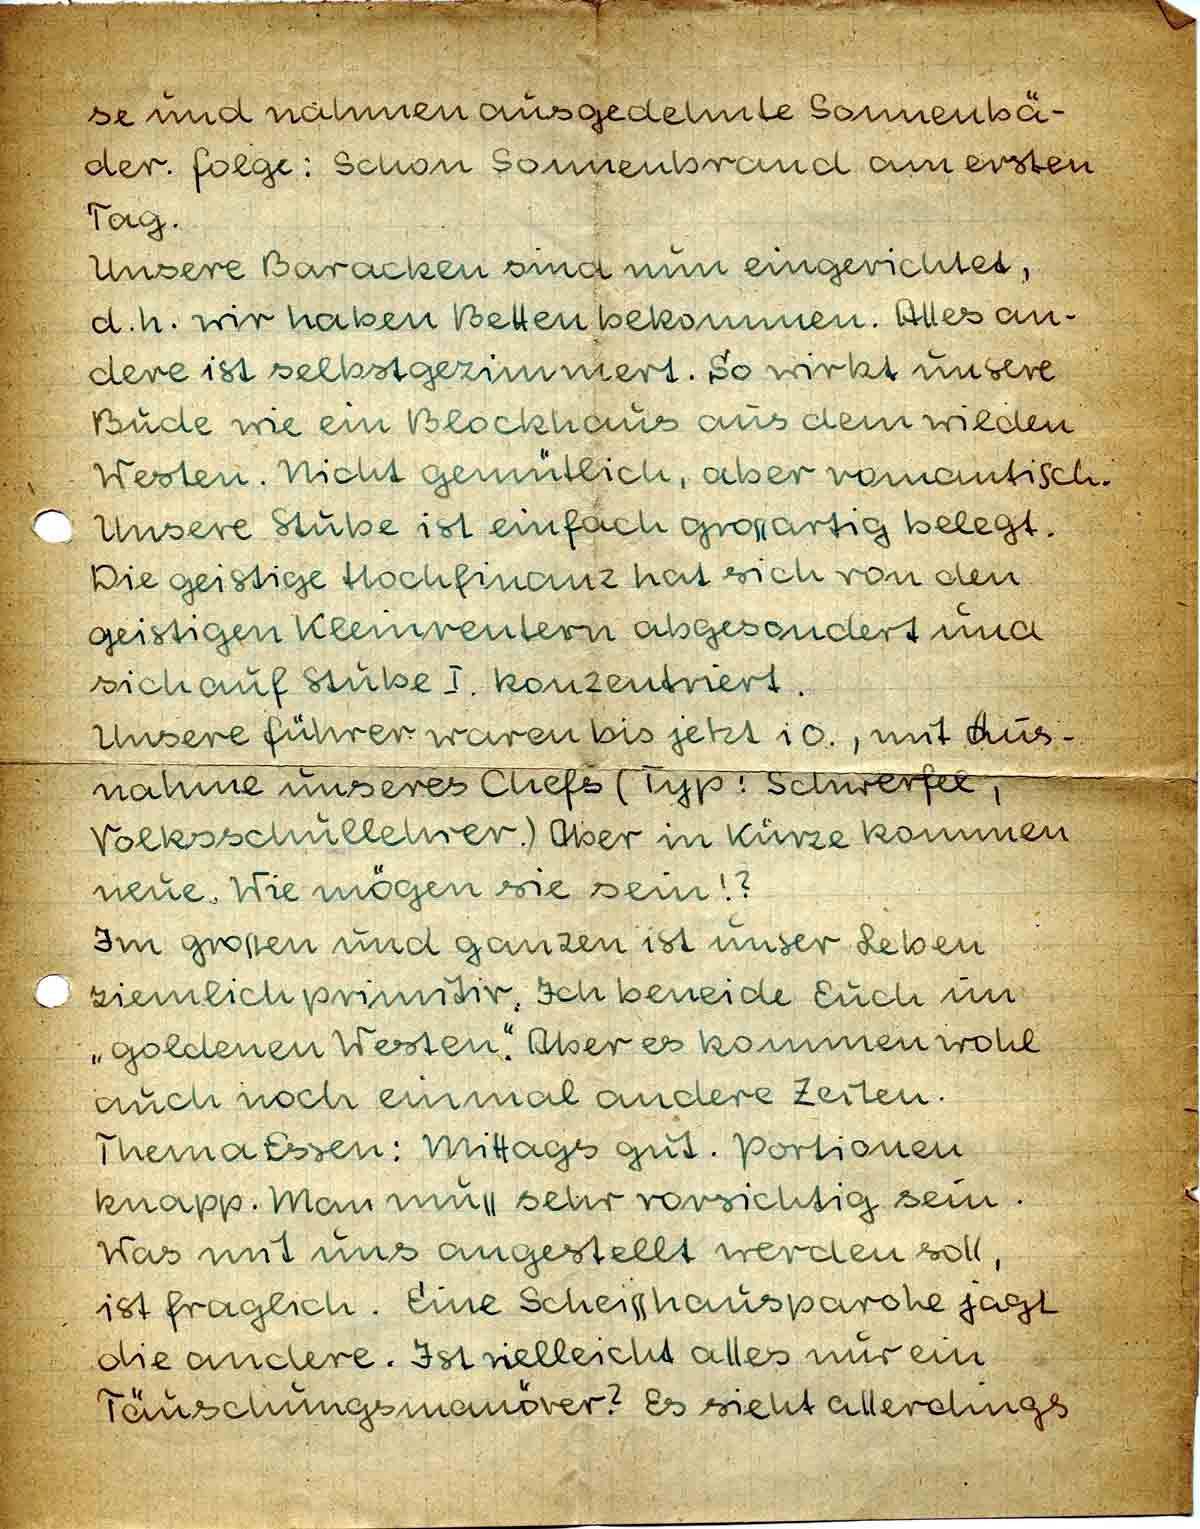 se und nahmen ausgedehnte Sonnenbä-
der. Folge: Schon Sonnenbrand am ersten
Tag.
Unsere Baracken sind nun eingerichtet,
d.h. wir haben Betten bekommen. Alles an-
dere ist selbstgezimmert. So wirkt unsere
Bude wie ein Blockhaus aus dem wilden
Westen. Nicht gemütlich, aber romantisch.
Unsere Stube ist einfach großartig belegt.
Die geistige Hochfinanz hat sich von den
geistigen Kleinrentern abgesondert und
sich auf Stube I. konzentriert.
Unsere Führer waren bis jetzt i O., mit Aus-
nahme unseres Chefs (Typ: Schwerfel,
Volksschullehrer.) Aber in Kürze kommen
neue. Wie mögen sie sein!?
Im großen und ganzen ist unser Leben
ziemlich primitiv. Ich beneide Euch im
„goldenen Westen“. Aber es kommen wohl
auch noch einmal andere Zeiten.
Thema Essen: Mittags gut. Portionen
knapp. Man muß sehr vorsichtig sein.
Was mit uns angestellt werden soll,
ist fraglich. Eine Scheißhausparole jagt
die andere. Ist vielleicht alles nur ein
Täuschungsmanöver? Es sieht allerdings